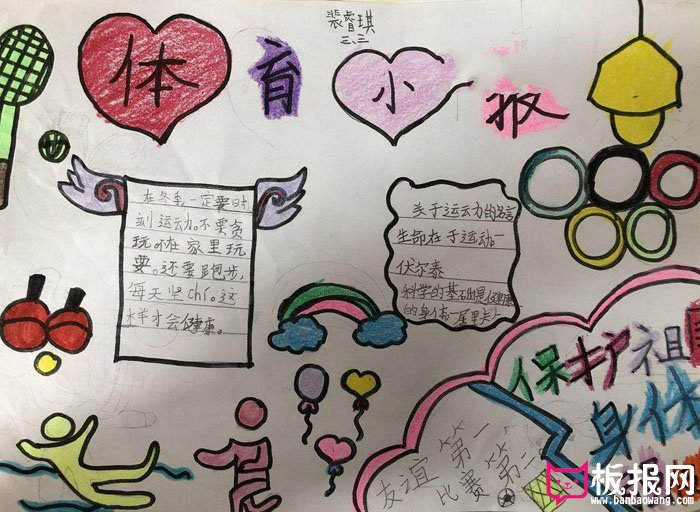 裴睿琪
三、三
体育小报
在冬季一定要时
刻运动。不要贪
玩。不在家里玩
耍。还要跑步,
每天坚chí。这
样才会健康。
关于运动的名言
生命在于运动—
伏尔泰
科学的基础是健康
的身体—居里夫人
保护祖
身体
友谊第一,
比赛第二
板报网
www.banbaowang.com